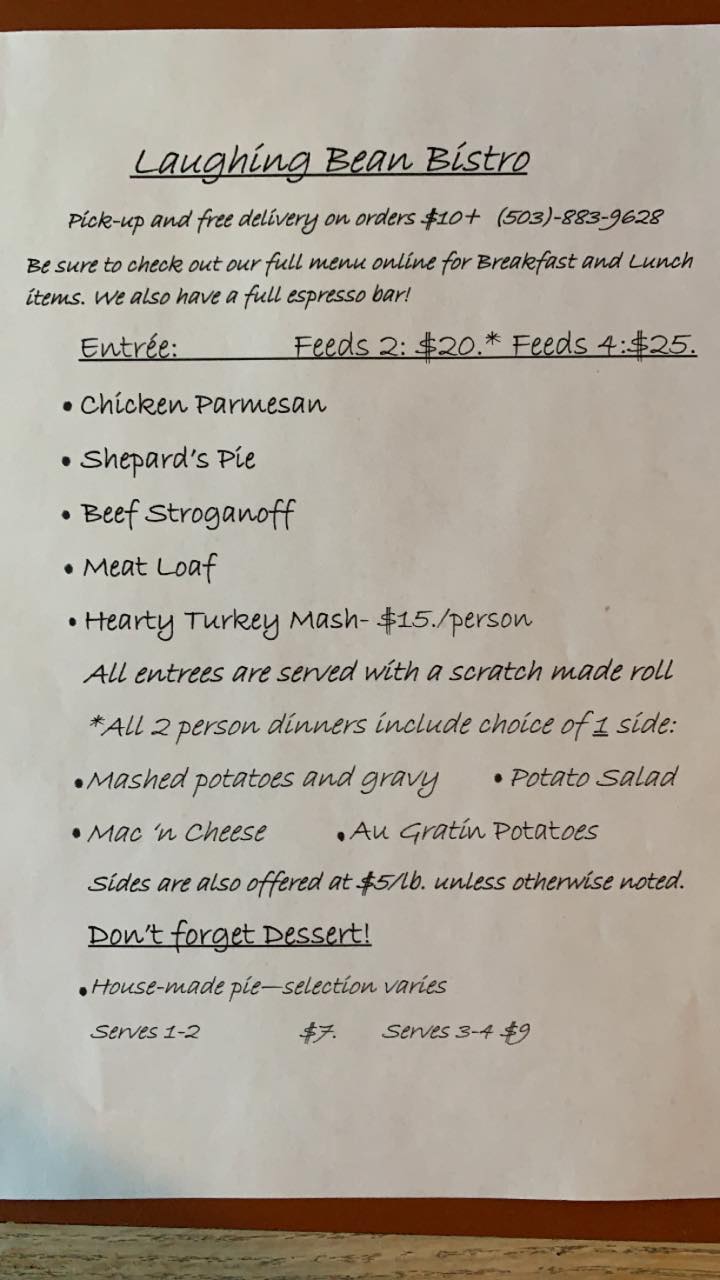 Laughing Bean Bistro
Pick-up and free delivery on orders $10+ (503)-883-9628
Be sure to check out our full menu online for Breakfast and Lunch
items. We also have a full espresso bar!
Entrée: Feeds 2: $20.* Feeds 4:$25.
• Chicken Parmesan
• Shepard's Pie
• Beef Stroganoff
• Meat Loaf
• Hearty Turkey Mash- $15./person
All entrees are served with a scratch made roll
*All 2 person dinners include choice of 1 side:
• Mashed potatoes and gravy • Potato Salad
• Mac 'n Cheese • Au Gratin Potatoes
Sides are also offered at $5/lb. unless otherwise noted.
Don't forget Dessert!
• House-made pie—selection varies
Serves 1-2 $7. Serves 3-4 $9